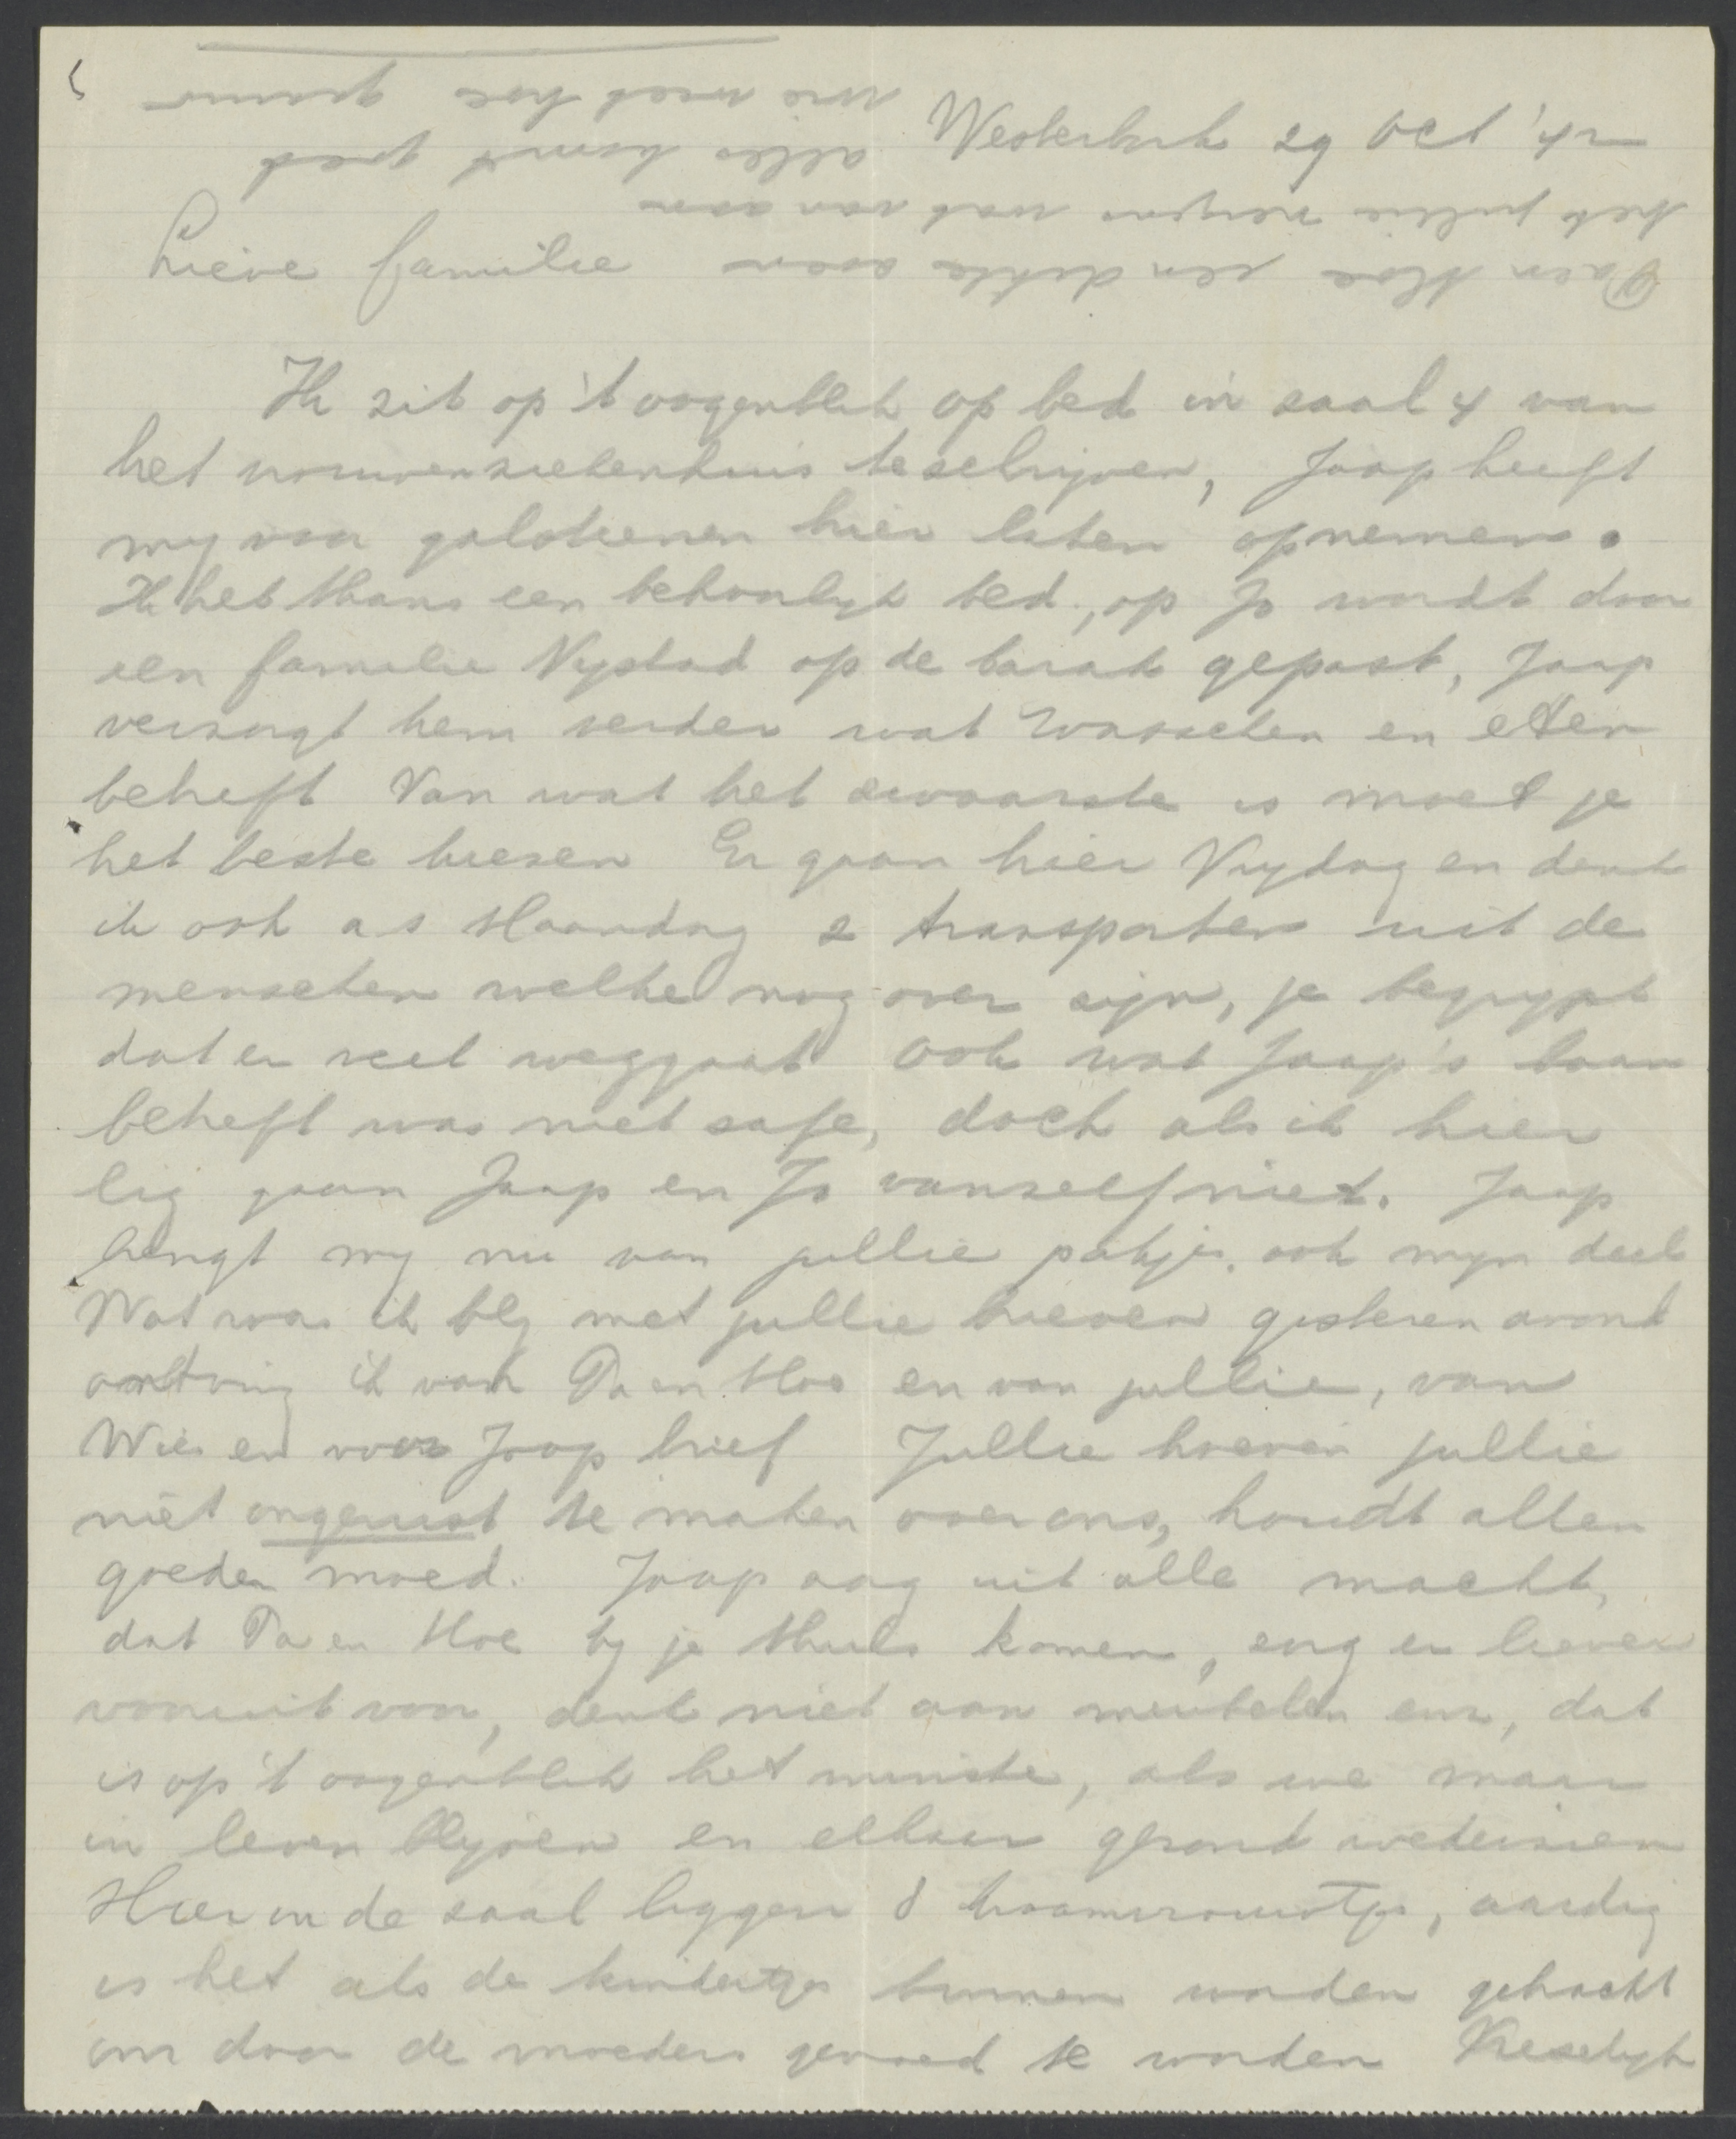 Westerbork 29 Oct '42
Lieve familie
Ik zit op 't oogenblik op bed in zaal 4 van
het vrouwenziekenhuis te schrijven, Jaap heeft
mij voor galsteenen hier laten opnemen.
Ik heb thans een behoorlijk bed, op Jo wordt door
een familie Nijstad op de barak gepast, Jaap
verzorgt hem verder wat wasschen en eten
betreft Van wat het zwaarste is moet je
het beste kiezen Er gaan hier Vrijdag en denk
ik ook a s Maandag 2 transporten uit de
menschen welke nog over zijn, je begrijpt
dat er veel weggaat Ook wat Jaap's baan
betreft was niet safe, doch als ik hier
lig gaan Jaap en Jo vanzelf niet. Jaap
brengt mij nu van jullie pakjes ook mijn deel
Wat was ik blij met jullie brieven gisteren avond
ontving ik van Pa en Moe en van jullie, van
Wies en voor Jaap brief Jullie hoeven jullie
niet ongerust te maken over ons, houdt allen
goeden moed. Jaap zag uit alle macht,
dat Pa en Moe bij je thuis komen, zorg er liever
vooruit voor, denk niet aan meubelen enz, dat
is op 't oogenblik het minste, als we maar
in leven blijven en elkaar gezond wederzien
Hier in de zaal liggen 8 kraamvrouwtjes, aardig
is het als de kindertjes binnen worden gebracht
om door de moeders gevoed te worden Vreselijk
Pa en Moe een dikke zoen
heb jullie verder wat van
alles komt goed
wie weet hoe gauw